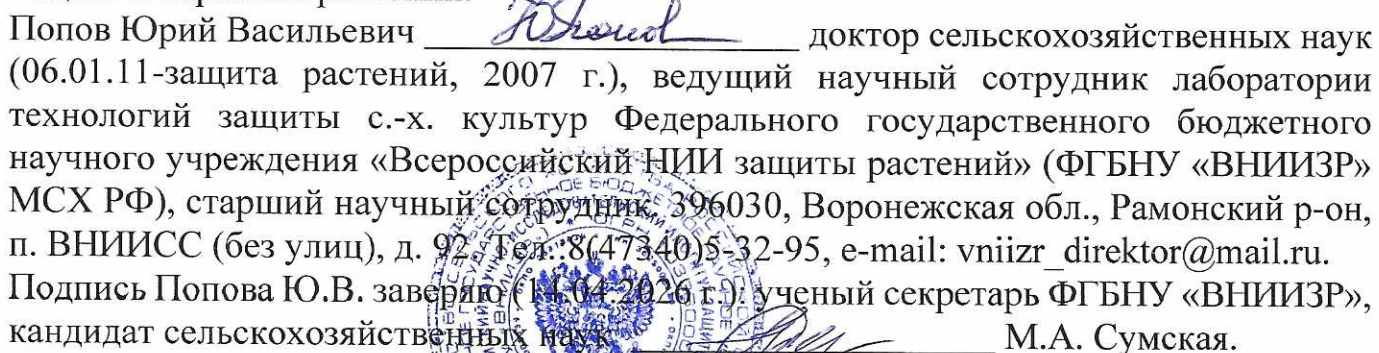 Попов Юрий Васильевич доктор сельскохозяйственных наук
(06.01.11-защита растений, 2007 г.), ведущий научный сотрудник лаборатории
технологий защиты с.-х. культур Федерального государственного бюджетного
научного учреждения «Всероссийский НИИ защиты растений» (ФГБНУ «ВНИИЗР»
МСХ РФ), старший научный сотрудник, 396030, Воронежская обл., Рамонский р-он,
п. ВНИИСС (без улиц), д. 92. Тел.:8(47340)5-32-95, e-mail: vniizr_direktor@mail.ru.
Подпись Попова Ю.В. заверяю (14.04.2026 г.): ученый секретарь ФГБНУ «ВНИИЗР»,
кандидат сельскохозяйственных наук М.А. Сумская.